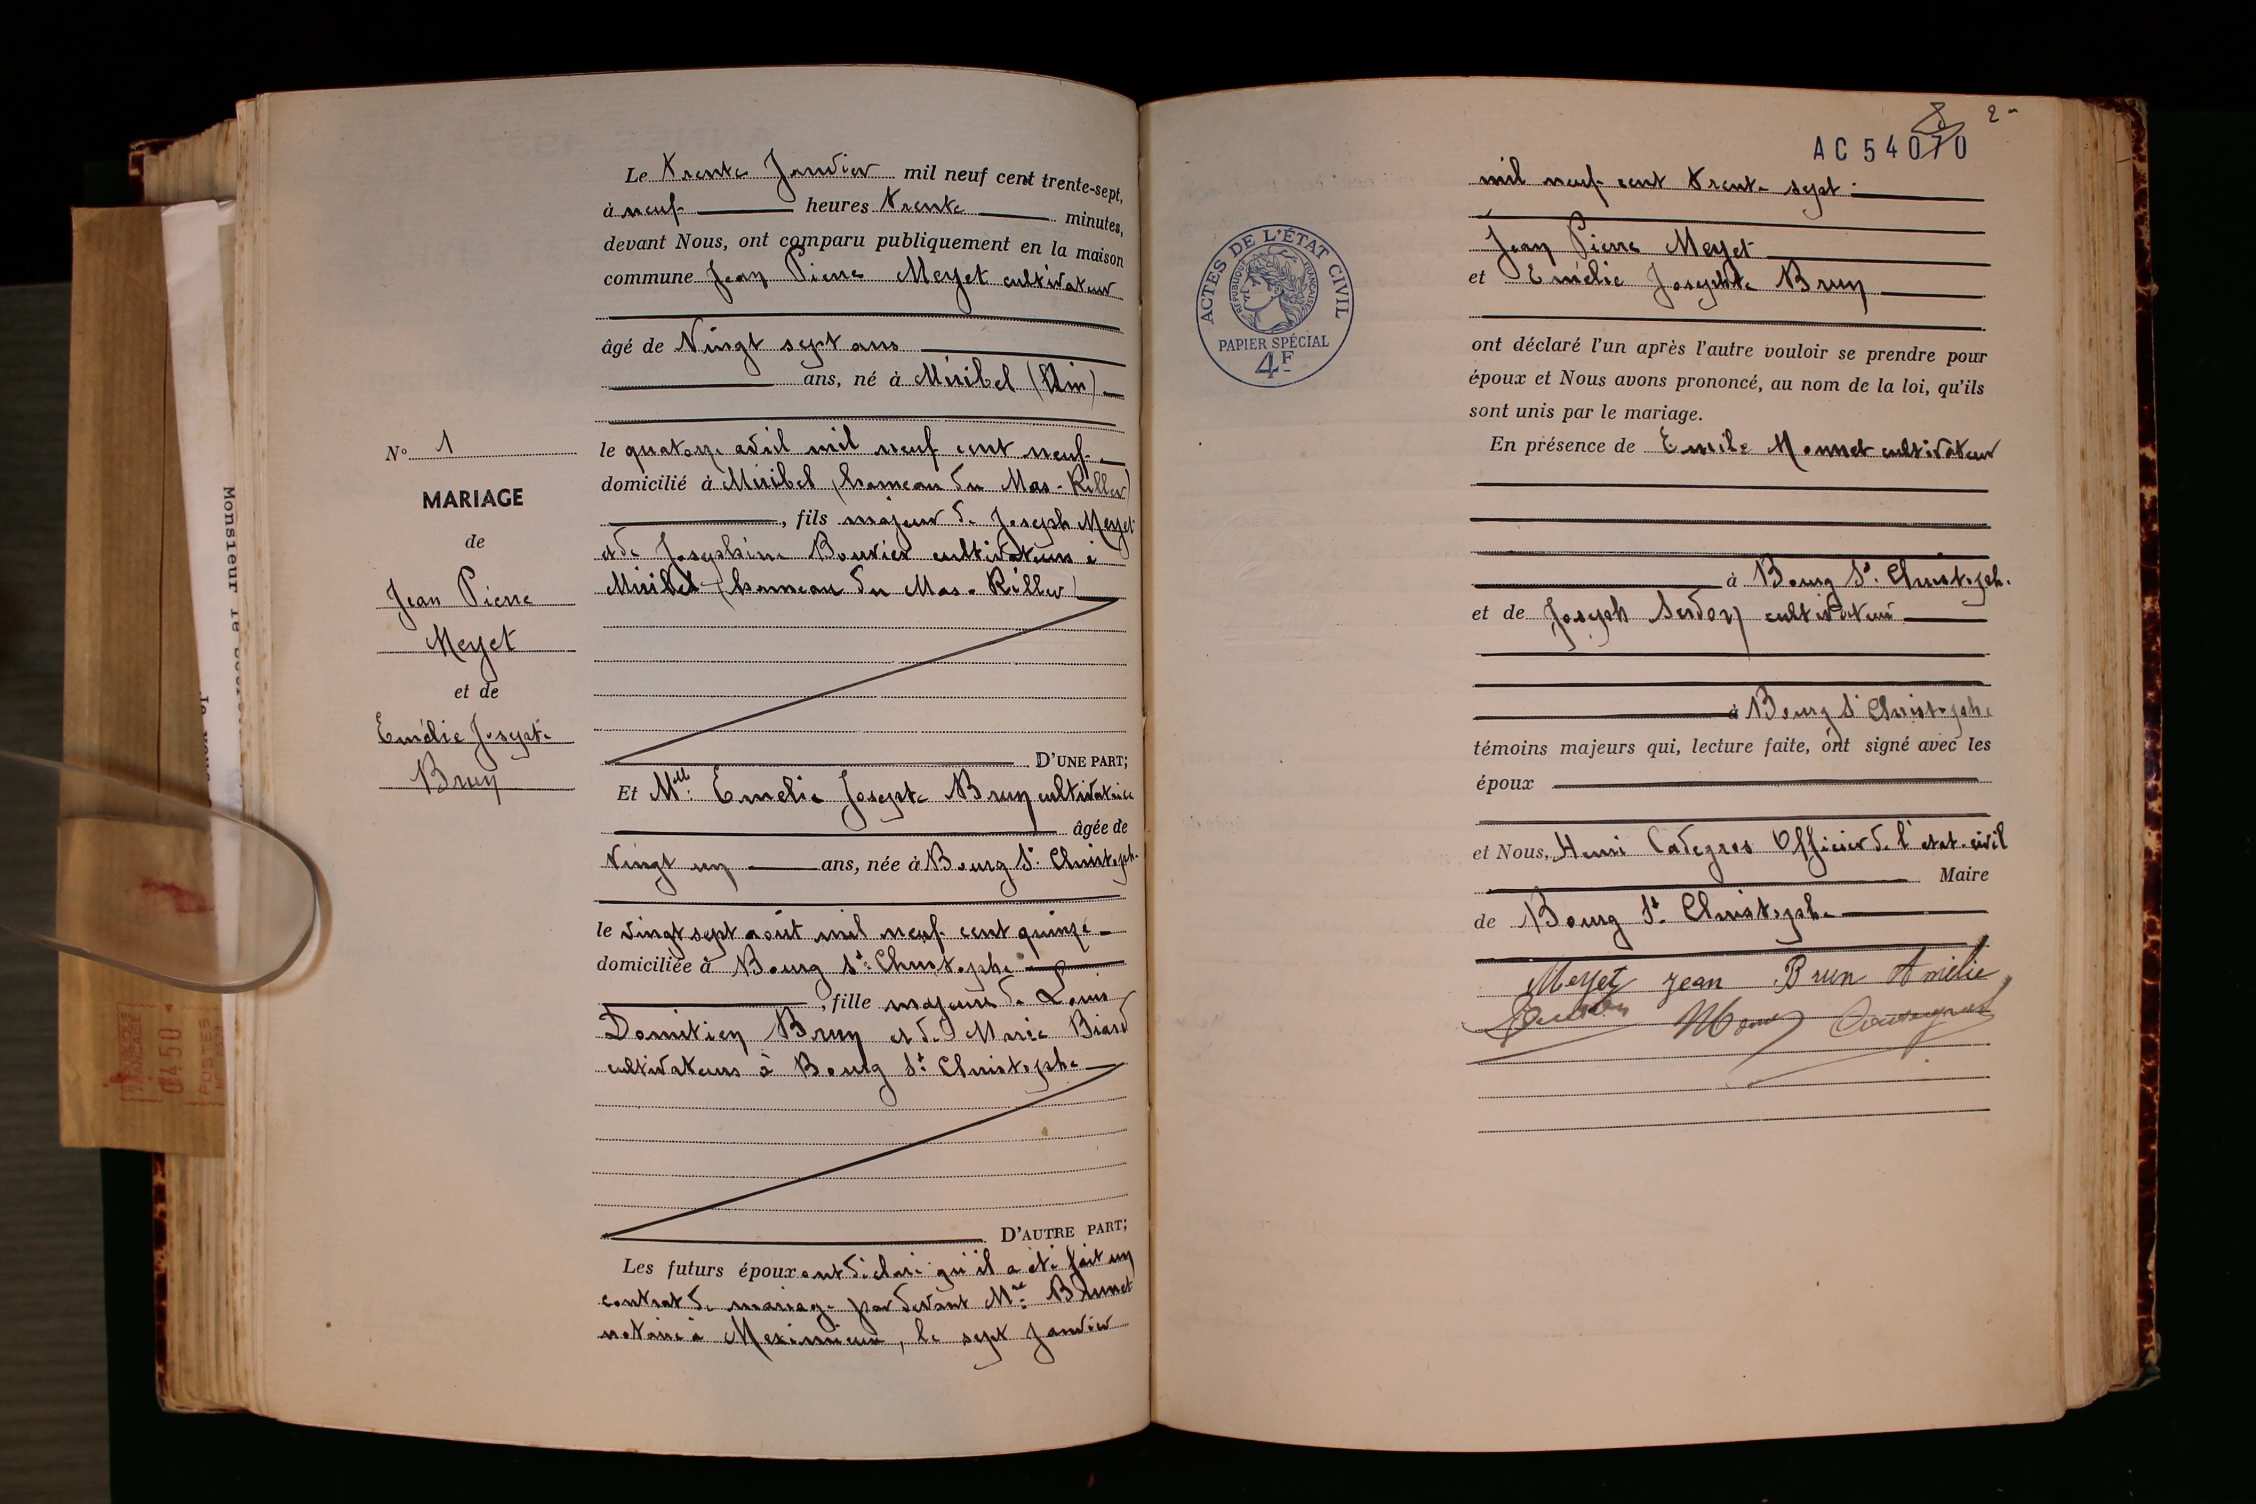 Le Trente Janvier mil neuf cent trente-sept,
à neuf heures Trente minutes,
devant Nous, ont comparu publiquement en la maison
commune Jean Pierre Meyet cultivateur
âgé de Vingt sept ans
ans, né à Miribel (Ain)
le quatorze avril mil neuf cent neuf
domicilié à Miribel (hameau du Mas-Rillier)
, fils majeur de Joseph Meyet
et de Joséphine Bouvier cultivateurs à
Miribel (hameau du Mas-Rillier)
D'UNE PART;
Et Mlle Emélie Josephte Brun cultivatrice
âgée de
Vingt un ans, née à Bourg St Christophe
le vingt sept août mil neuf cent quinze
domiciliée à Bourg St Christophe
, fille majeure de Louis
Domitien Brun et de Marie Biard
cultivateurs à Bourg St Christophe
D'AUTRE PART;
Les futurs époux ont déclaré qu'il a été fait un
contrat de mariage par devant Me Brunet
notaire à Meximieux, le sept janvier
N° 1
MARIAGE
de
Jean Pierre
Meyet
et de
Emélie Josephte
Brun
Monsieur le
0450
POSTES
8 2
AC 54070
ACTES DE L'ÉTAT CIVIL
RÉPUBLIQUE FRANÇAISE
PAPIER SPÉCIAL
4F
mil neuf cent trente sept.
Jean Pierre Meyet
et Emélie Josephte Brun
ont déclaré l'un après l'autre vouloir se prendre pour
époux et Nous avons prononcé, au nom de la loi, qu'ils
sont unis par le mariage.
En présence de Emile Monnet cultivateur
à Bourg St Christophe
et de Joseph Serdon cultivateur
à Bourg St Christophe
témoins majeurs qui, lecture faite, ont signé avec les
époux
et Nous, Henri Cadegros Officier de l'état civil
Maire
de Bourg St Christophe
Meyet Jean Brun Amélie